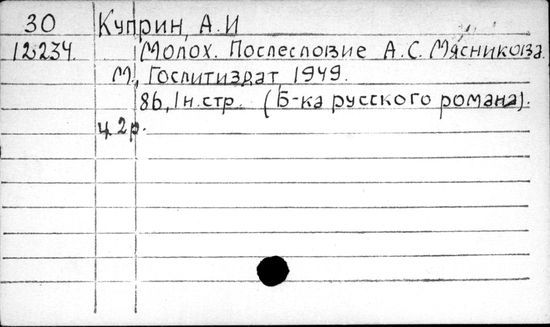 30 Куприн, А.И
12234. Молох. Послесловие А.С. Мясникова
М., Гослитиздат 1949.
86, 1 н.стр. (Б-ка русского романа).
ц. 2 р.